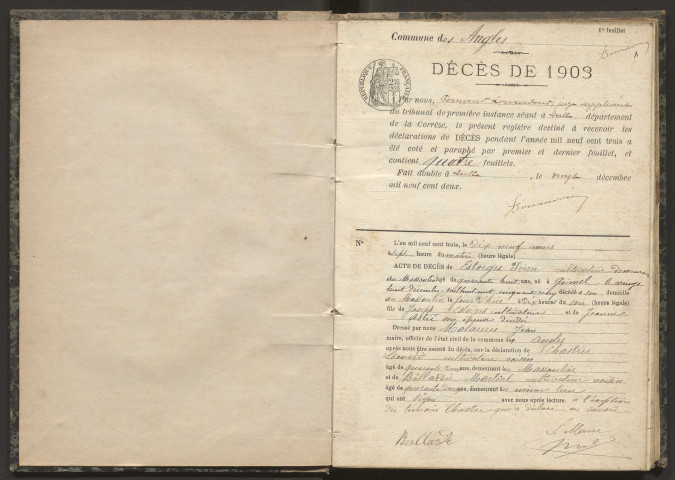 1er feuillet
Commune des Angles
DÉCÈS DE 1903
RÉPUBLIQUE FRANÇAISE
Par nous, juge suppléant
du tribunal de première instance séant à Tulle département
de la Corrèze, le présent registre destiné à recevoir les
déclarations de DÉCÈS pendant l'année mil neuf cent trois a
été coté et paraphé par premier et dernier feuillet, et
contient quatre feuillets.
Fait double à Tulle, le vingt décembre
mil neuf cent deux.
N°
L'an mil neuf cent trois, le dix neuf mars
à sept heure du matin (heure légale)
ACTE DE DÉCÈS de Estorges cultivateur demeurant
au Massoulié âgé de quarante huit ans, né à Gimel le vingt
huit décembre mil huit cent cinquante cinq décédé à son domicile
au Massoulié le jour d'hier à dix heures du soir (heure légale)
fils de Joseph Estorges cultivateur et de Jeanne
son épouse
Dressé par nous Malaurie Jean
maire, officier de l'état civil de la commune des Angles
après nous être assuré du décès, sur la déclaration de Chastres
Léonard cultivateur voisin
âgé de quarante ans, demeurant au Massoulié
et de Martial cultivateur voisin
âgé de quarante ans, demeurant au même lieu
qui ont signé avec nous après lecture à l'exception
du Chastres qui a déclaré ne savoir
Le Maire